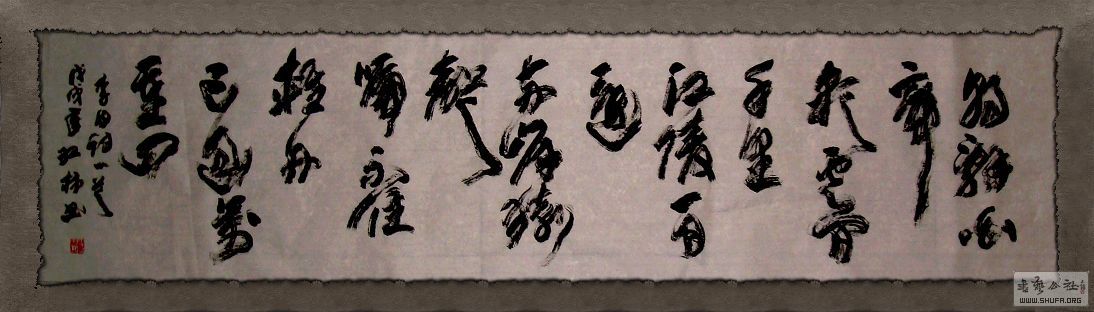 朝辞白
帝
彩云间
千里
江陵一日
还
两岸猿
声
啼不住
轻舟
已过万
重山
李白诗一首
戊戌
書藝公社
WWW.SHUFA.ORG